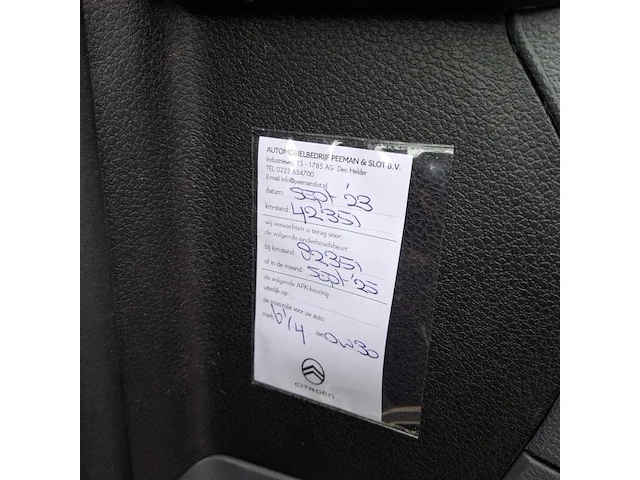 AUTOMOBIELBEDRIJF PEEMAN & SLOT B.V.
Industrieweg 15 - 1785 AG Den Helder
TEL 0223 634700
Email: info@peemanslot.nl
datum: sept '23
km-stand: 42351
wij verwachten u terug voor:
de volgende onderhoudsbeurt
bij km-stand: 82351
of in de maand: sept '25
de volgende APK-keuring
uiterlijk op:
de motorolie voor uw auto:
merk: 0w30
CITROËN